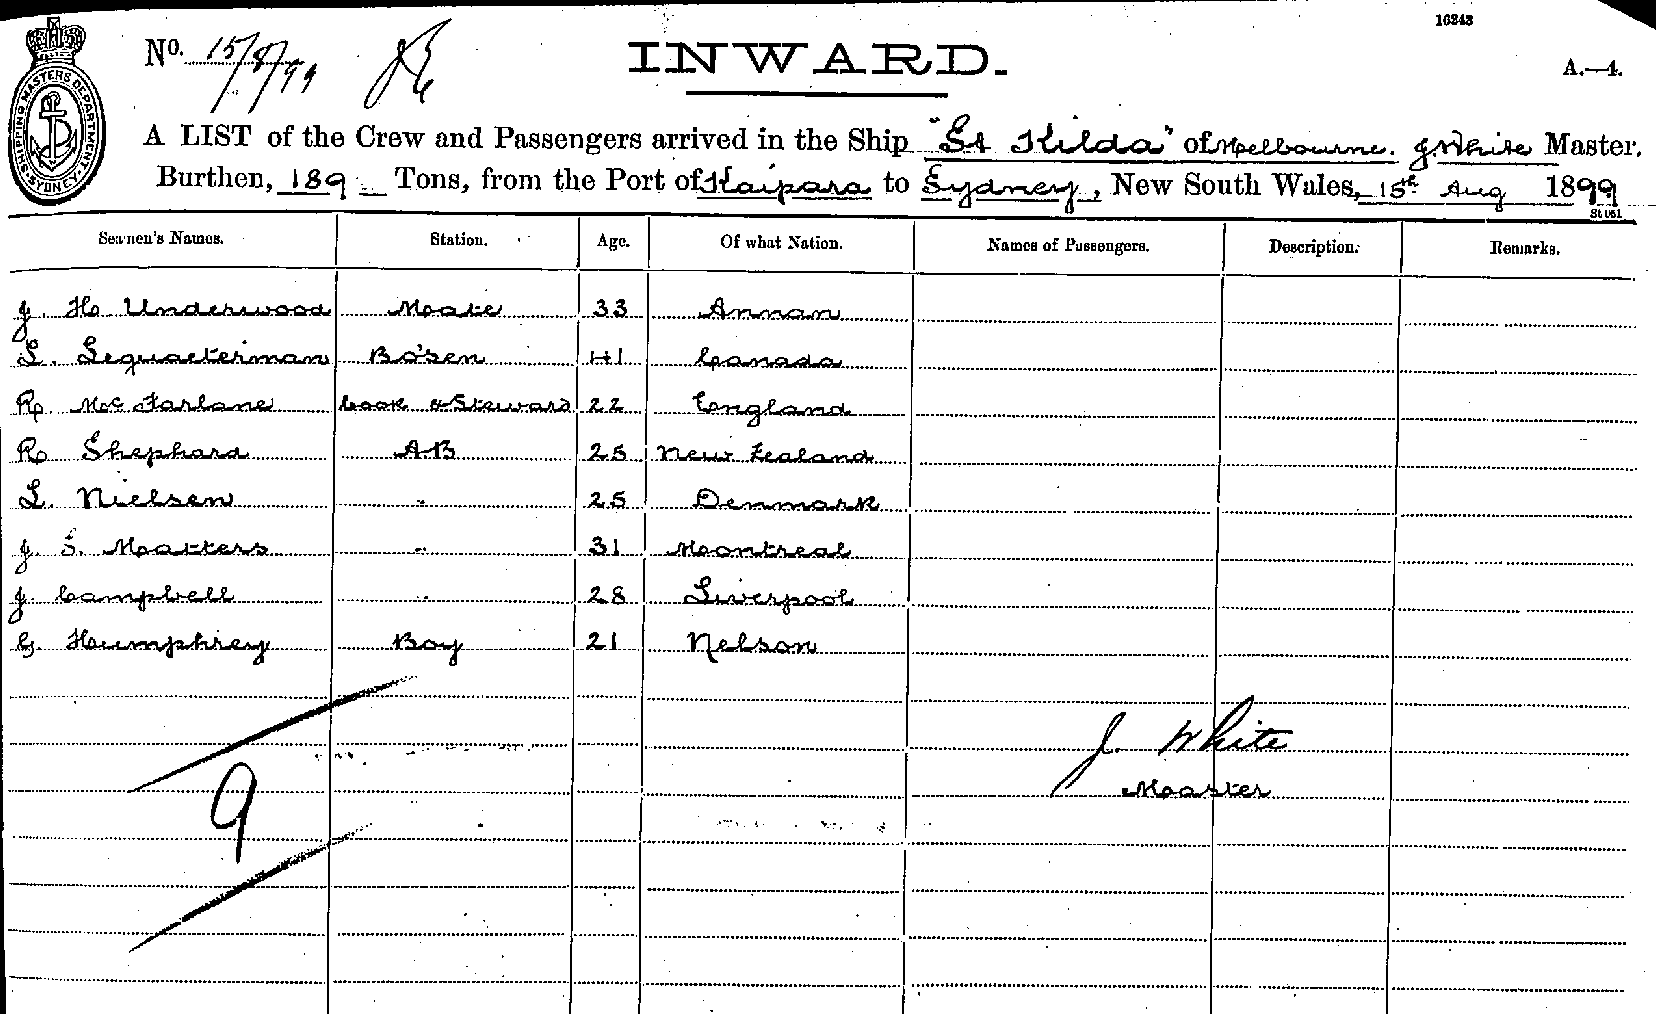 16243
No. 15/8/99
INWARD.
A.—4.
SHIPPING MASTERS DEPARTMENT SYDNEY
A LIST of the Crew and Passengers arrived in the Ship "St Kilda" of Melbourne. J. White Master.
Burthen, 189 Tons, from the Port of Kaipara to Sydney, New South Wales, 15th Aug 1899
Seamen's Names. Station. Age. Of what Nation. Names of Passengers. Description. Remarks.
J. H. Underwood Mate 33 Annan
L. Lequaterman Bo'sen 41 Canada
R. McFarlane Cook & Steward 22 England
R. Shephard AB 25 New Zealand
L. Nielsen " 25 Denmark
J. S. Matters " 31 Montreal
J. Campbell " 28 Liverpool
G. Humphrey Boy 21 Nelson
J. White
Master
9